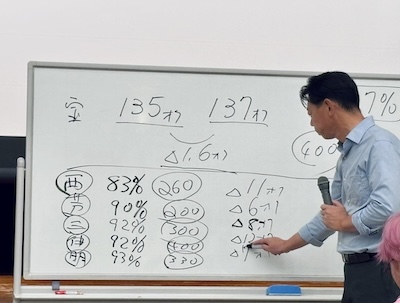 宝 135オク 137オク 7%
△1.6オク 400
西 83% 260 △11オク
芳 90% 200 △6オク
三 92% 300 △8オク
92% 400
朋 93% 330